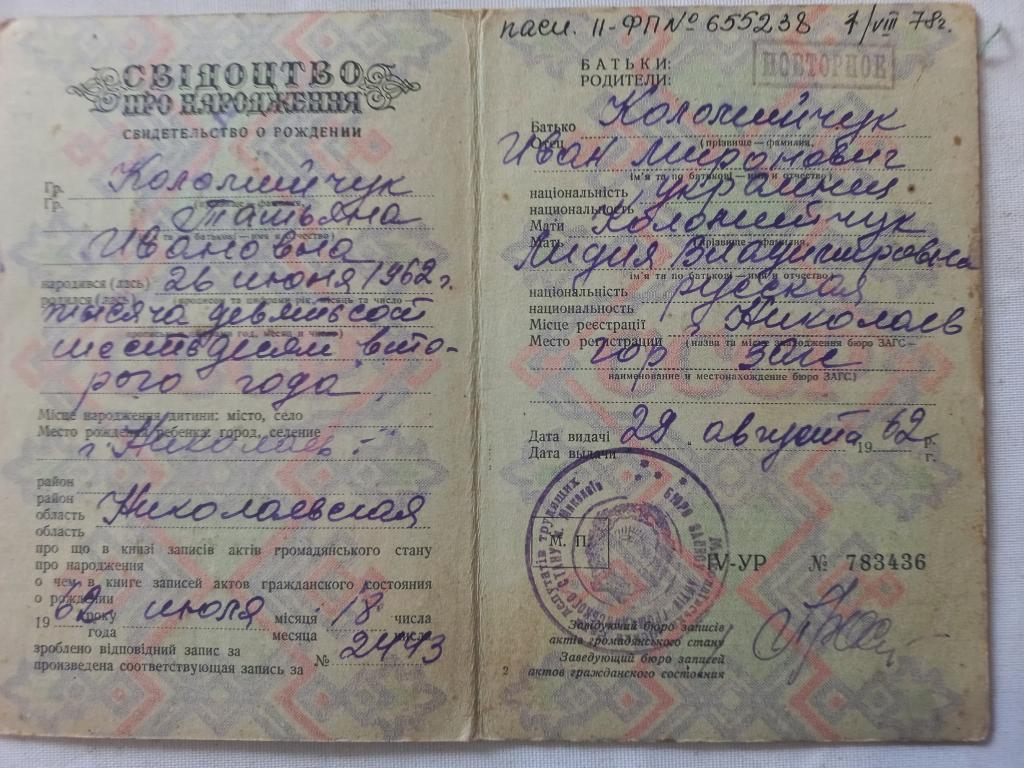 СВІДОЦТВО
ПРО НАРОДЖЕННЯ
СВИДЕТЕЛЬСТВО О РОЖДЕНИИ
Гр. Коломийчук
Гр.
Татьяна
Ивановна
народився (лась) 26 июня 1962 г.
родился (лась)
тысяча девятьсот
шестьдесят вто-
рого года
Місце народження дитини: місто, село
Место рождения ребенка: город, селение
г. Николаев
район
район
область Николаевская
область
про що в книзі записів актів громадянського стану
про народження
о чем в книге записей актов гражданского состояния
о рождении
19 62 року июля місяця 18 числа
года месяца числа
зроблено відповідний запис за
произведена соответствующая запись за № 2443
пасп. II-ФП № 655238 1/VIII 78г.
БАТЬКИ:
РОДИТЕЛИ:
ПОВТОРНОЕ
Батько Коломийчук
Отец (прізвище—фамилия,
Иван Миронович
ім'я та по батькові—имя и отчество)
національність украинец
национальность
Мати Коломийчук
Мать (прізвище—фамилия,
Лидия Владимировна
ім'я та по батькові—имя и отчество)
національність русская
национальность
Місце реєстрації Николаев
Место регистрации (назва та місцезнаходження бюро ЗАГС—
гор загс
наименование и местонахождение бюро ЗАГС)
Дата видачі 29 августа 1962 р.
Дата выдачи г.
М. П.
IV-УР № 783436
Завідуючий бюро записів
актів громадянського стану
Заведующий бюро записей
актов гражданского состояния
2